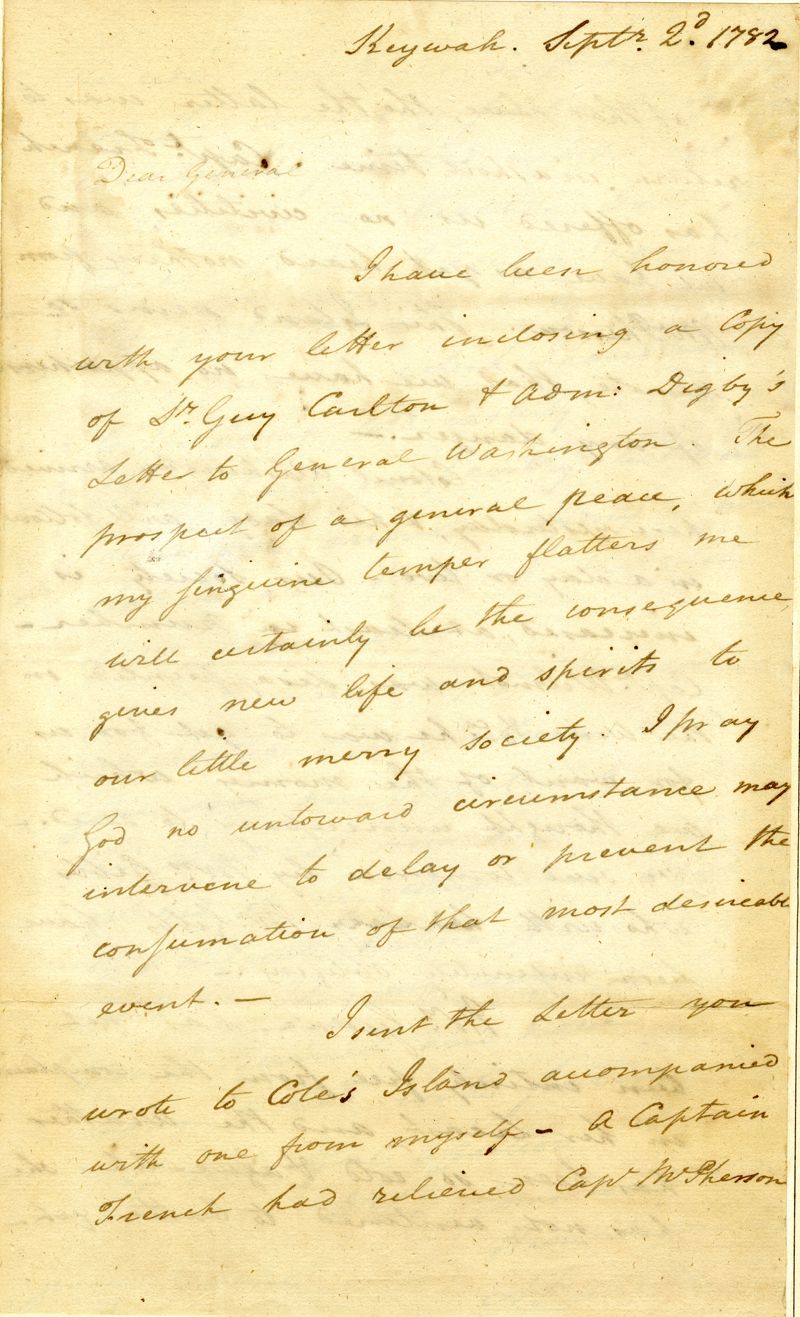 Keywah. Septr. 2d. 1782
Dear General
I have been honored
with your letter inclosing a Copy
of Sr. Guy Carlton & Adm: Digby's
Letter to General Washington. The
prospect of a general peace, which
my singuine temper flatters me
will certainly be the consequence,
gives new life and spirits to
our little merry society. I pray
God no untoward circumstance may
intervene to delay or prevent the
consumation of that most desireable
event. —
I sent the Letter you
wrote to Cole's Island accompanied
with one from myself – A Captain
French had relieved Capt. McPherson